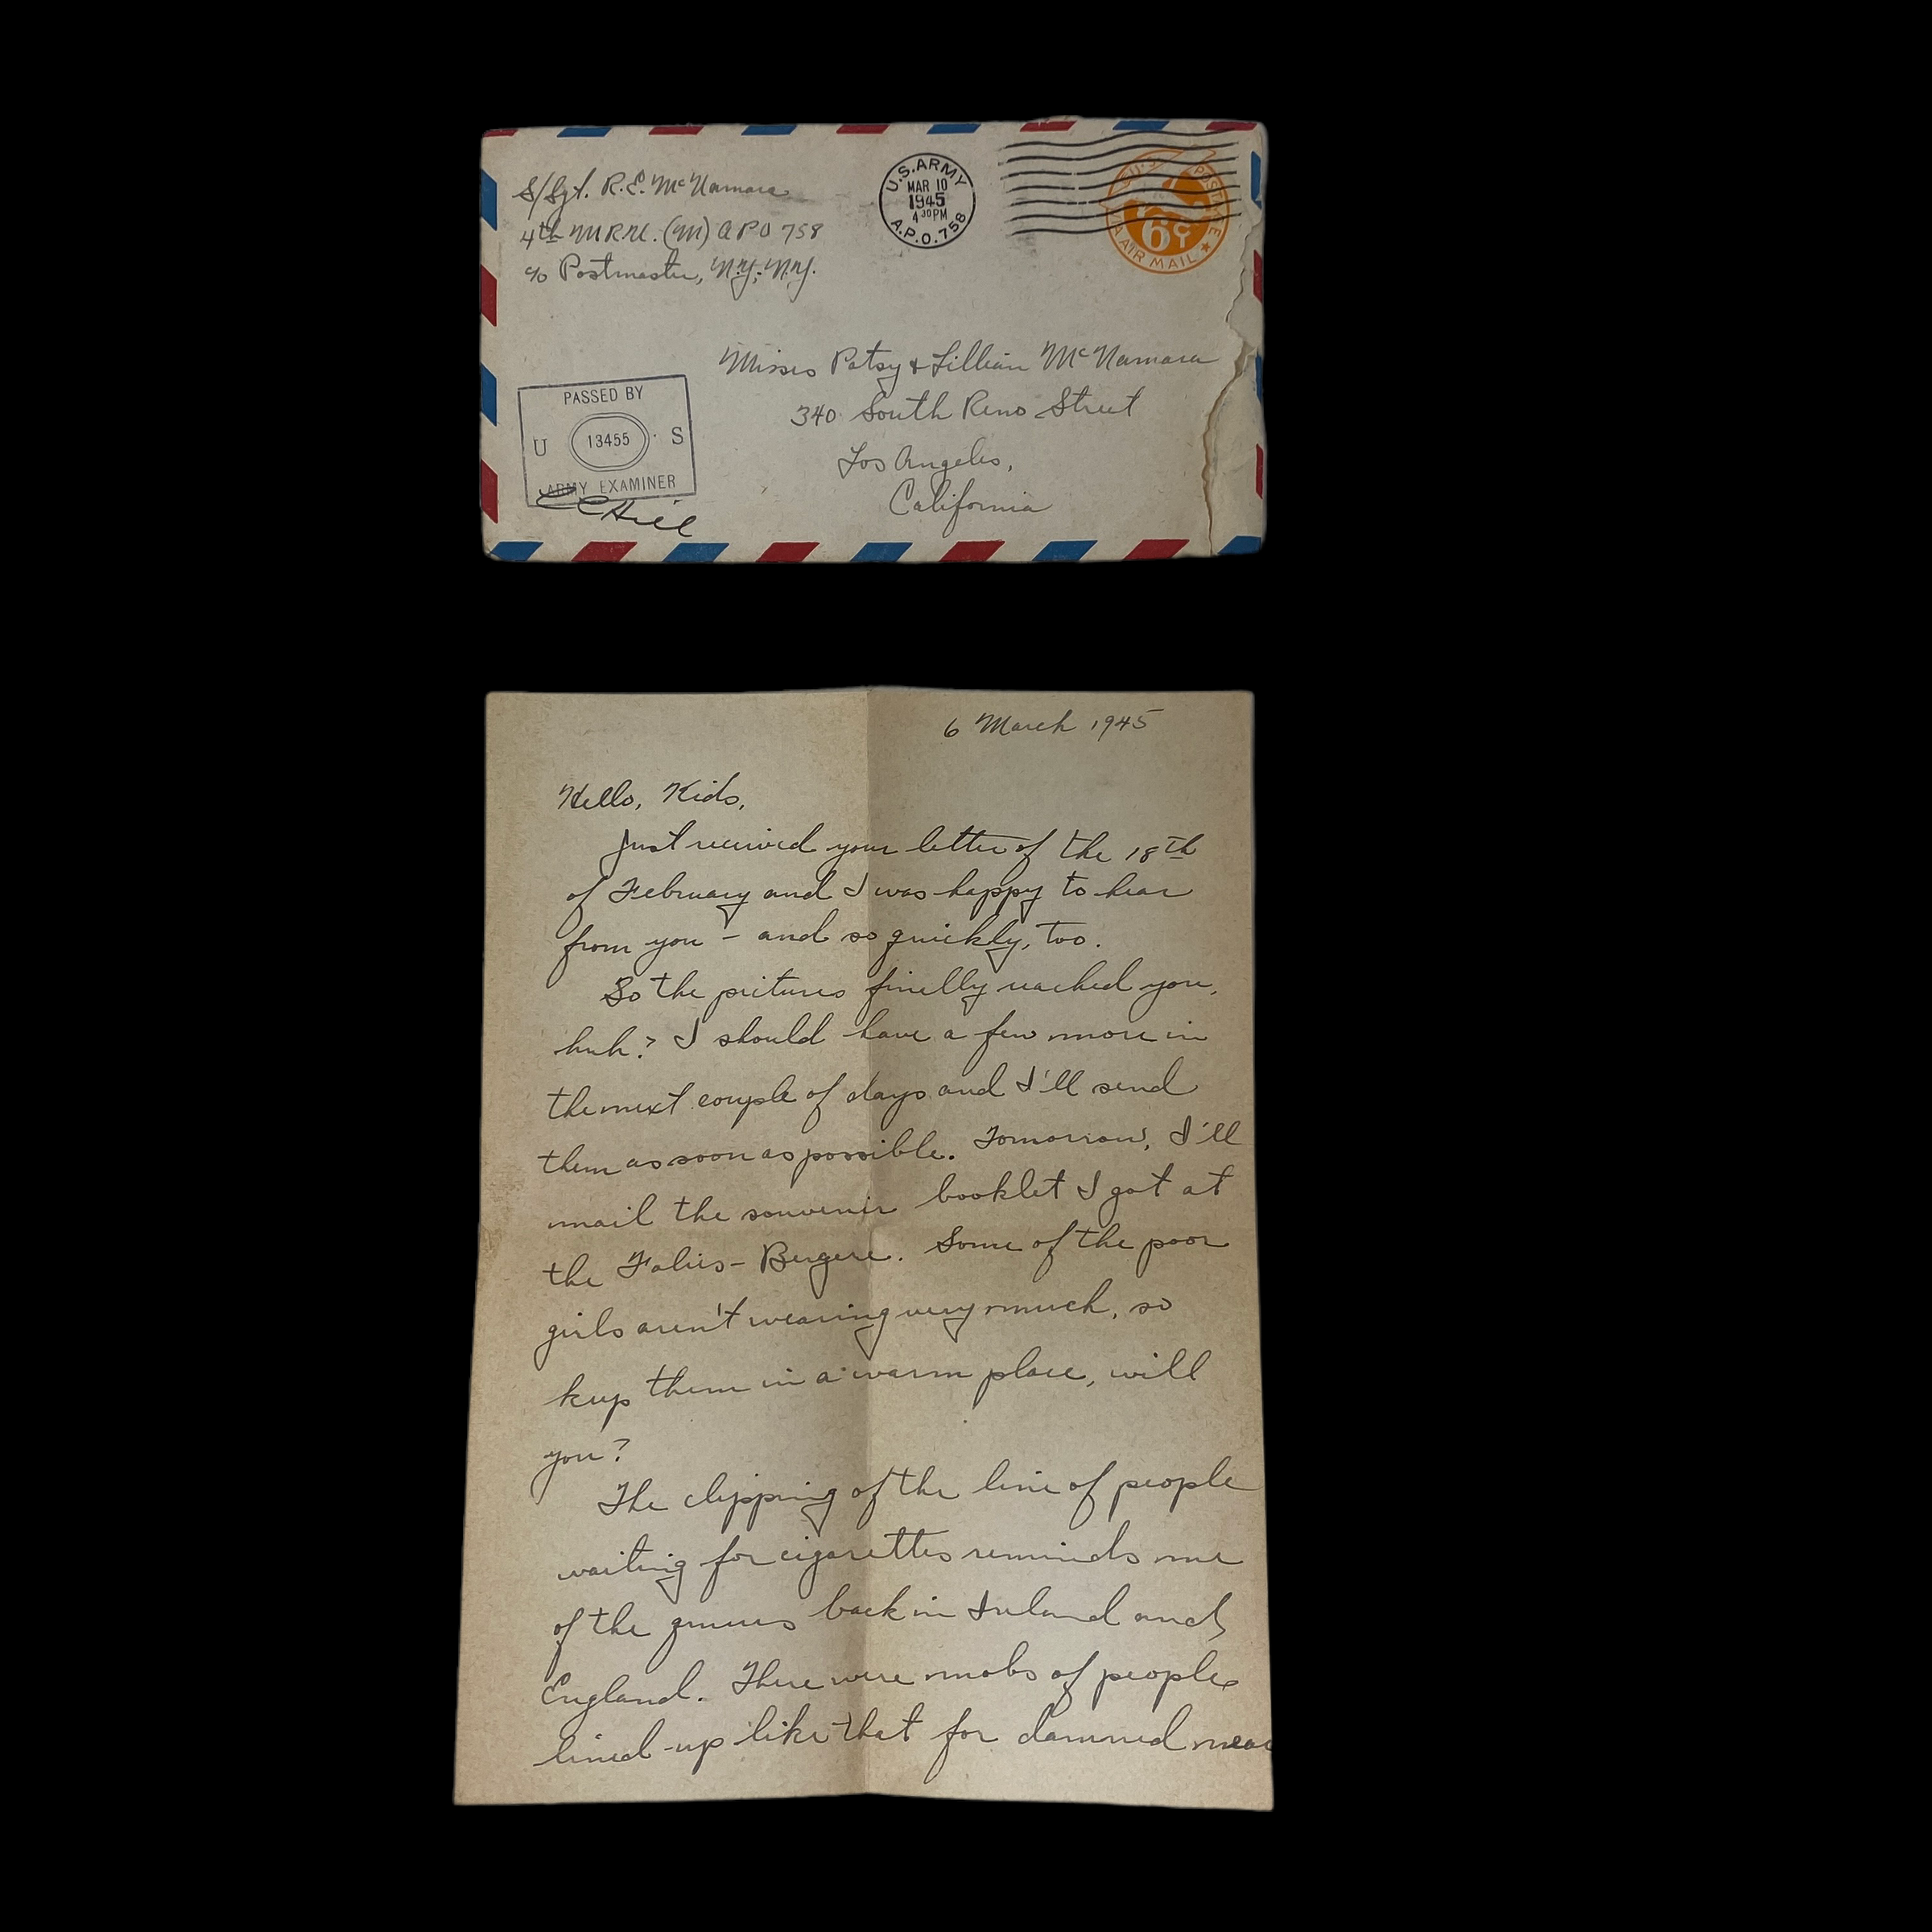 S/Sgt. R.E. McNamara
4th MRU. (M) APO 758
c/o Postmaster, N.Y., N.Y.
U.S. ARMY
MAR 10
1945
4 30 PM
A.P.O. 758
U.S. POSTAGE
6¢
VIA AIR MAIL
Misses Patsy & Lillian McNamara
340 South Reno Street
Los Angeles,
California
PASSED BY
U 13455 S
ARMY EXAMINER
Hill
6 March 1945
Hello, Kids,
Just received your letter of the 18th
of February and I was happy to hear
from you – and so quickly, too.
So the pictures finelly reached you,
huh? I should have a few more in
the next couple of days and I'll send
them as soon as possible. Tomorrow, I'll
mail the souvenir booklet I got at
the Folies-Bergere. Some of the poor
girls aren't wearing very much, so
keep them in a warm place, will
you?
The clipping of the line of people
waiting for cigarettes reminds me
of the queues back in Ireland and
England. There were mobs of people
lined-up like that for damned near